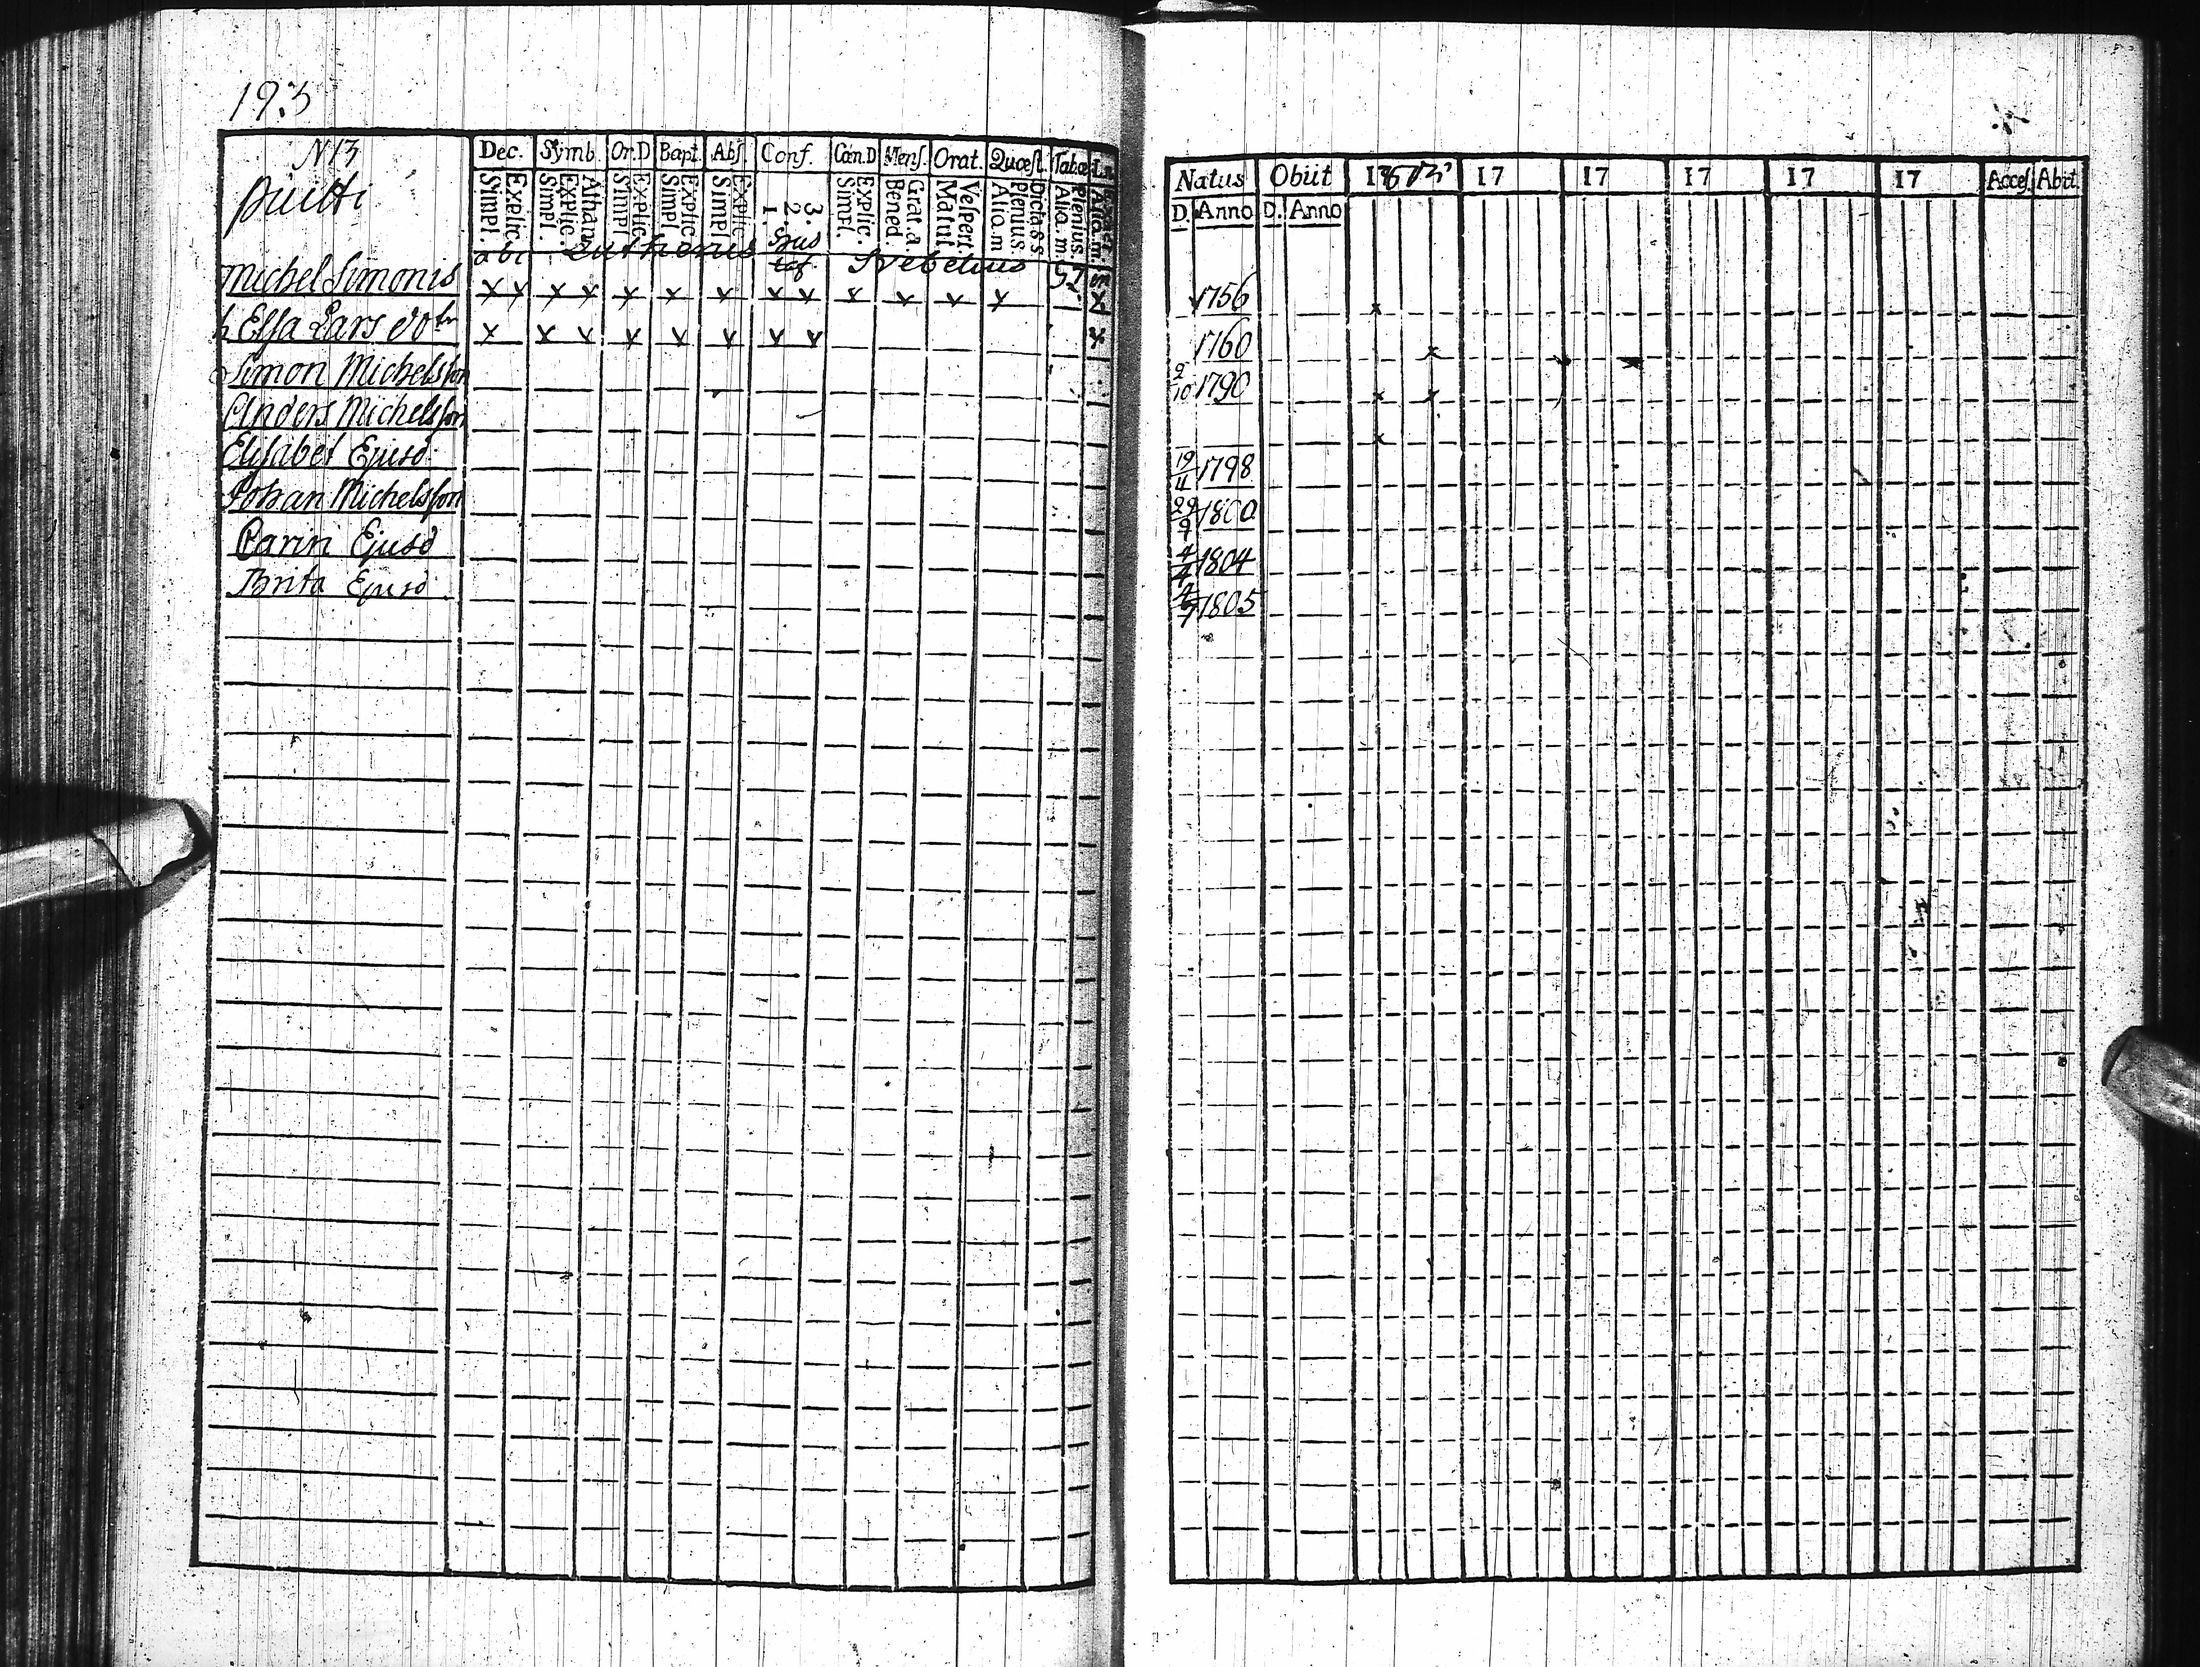 193
N 13
Dec. Symb. Or.D Bapt. Abſ. Conf. Cœn.D Menſ. Orat. Quæſt. Tabœ
Simpl. Explic. Simpl. Explic. Athan. Simpl. Explic. Simpl. Explic. Simpl. Explic. 1. 2. 3. Simpl. Explic. Bened. Grat.a. Matut. Veſpert. Aliq.m Plenius. Dicta.s.s. Aliq.m. Plenius.
abc Lutherus Svebelius
Michel Simonis x x x x x x x x x x x x x x
h Elsa Lars dotr x x x x x x x x x
Simon Michelsson
Anders Michelsson
Elisabet Ejusd.
Johan Michelsson
Carin Ejusd
Brita Ejusd
Natus Obiit 1803 17 17 17 17 17 Acceſ. Abiit.
D. Anno D. Anno
1756 x
1760 x
2/10 1790 x x
x
19/4 1798
29/9 1800
4/4 1804
1805